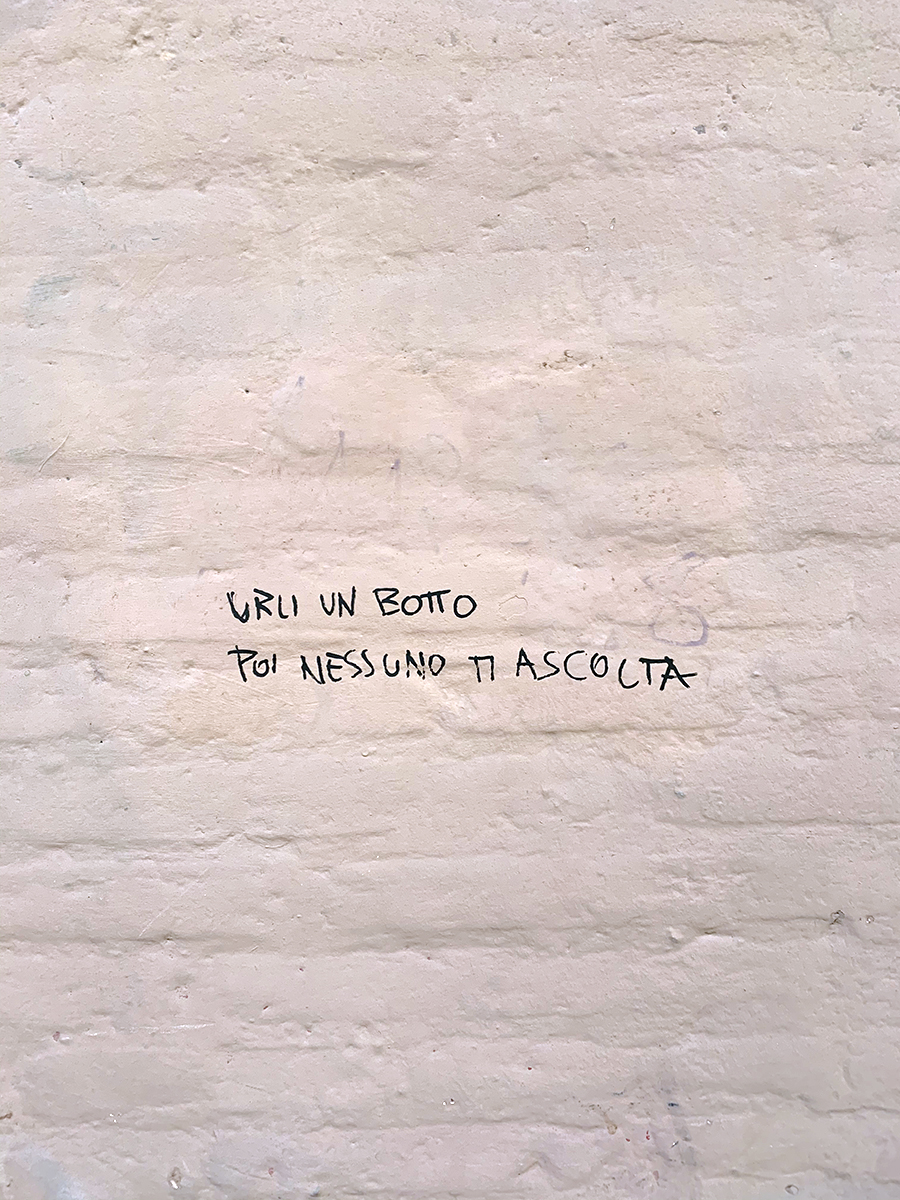 URLI UN BOTTO
POI NESSUNO TI ASCOLTA